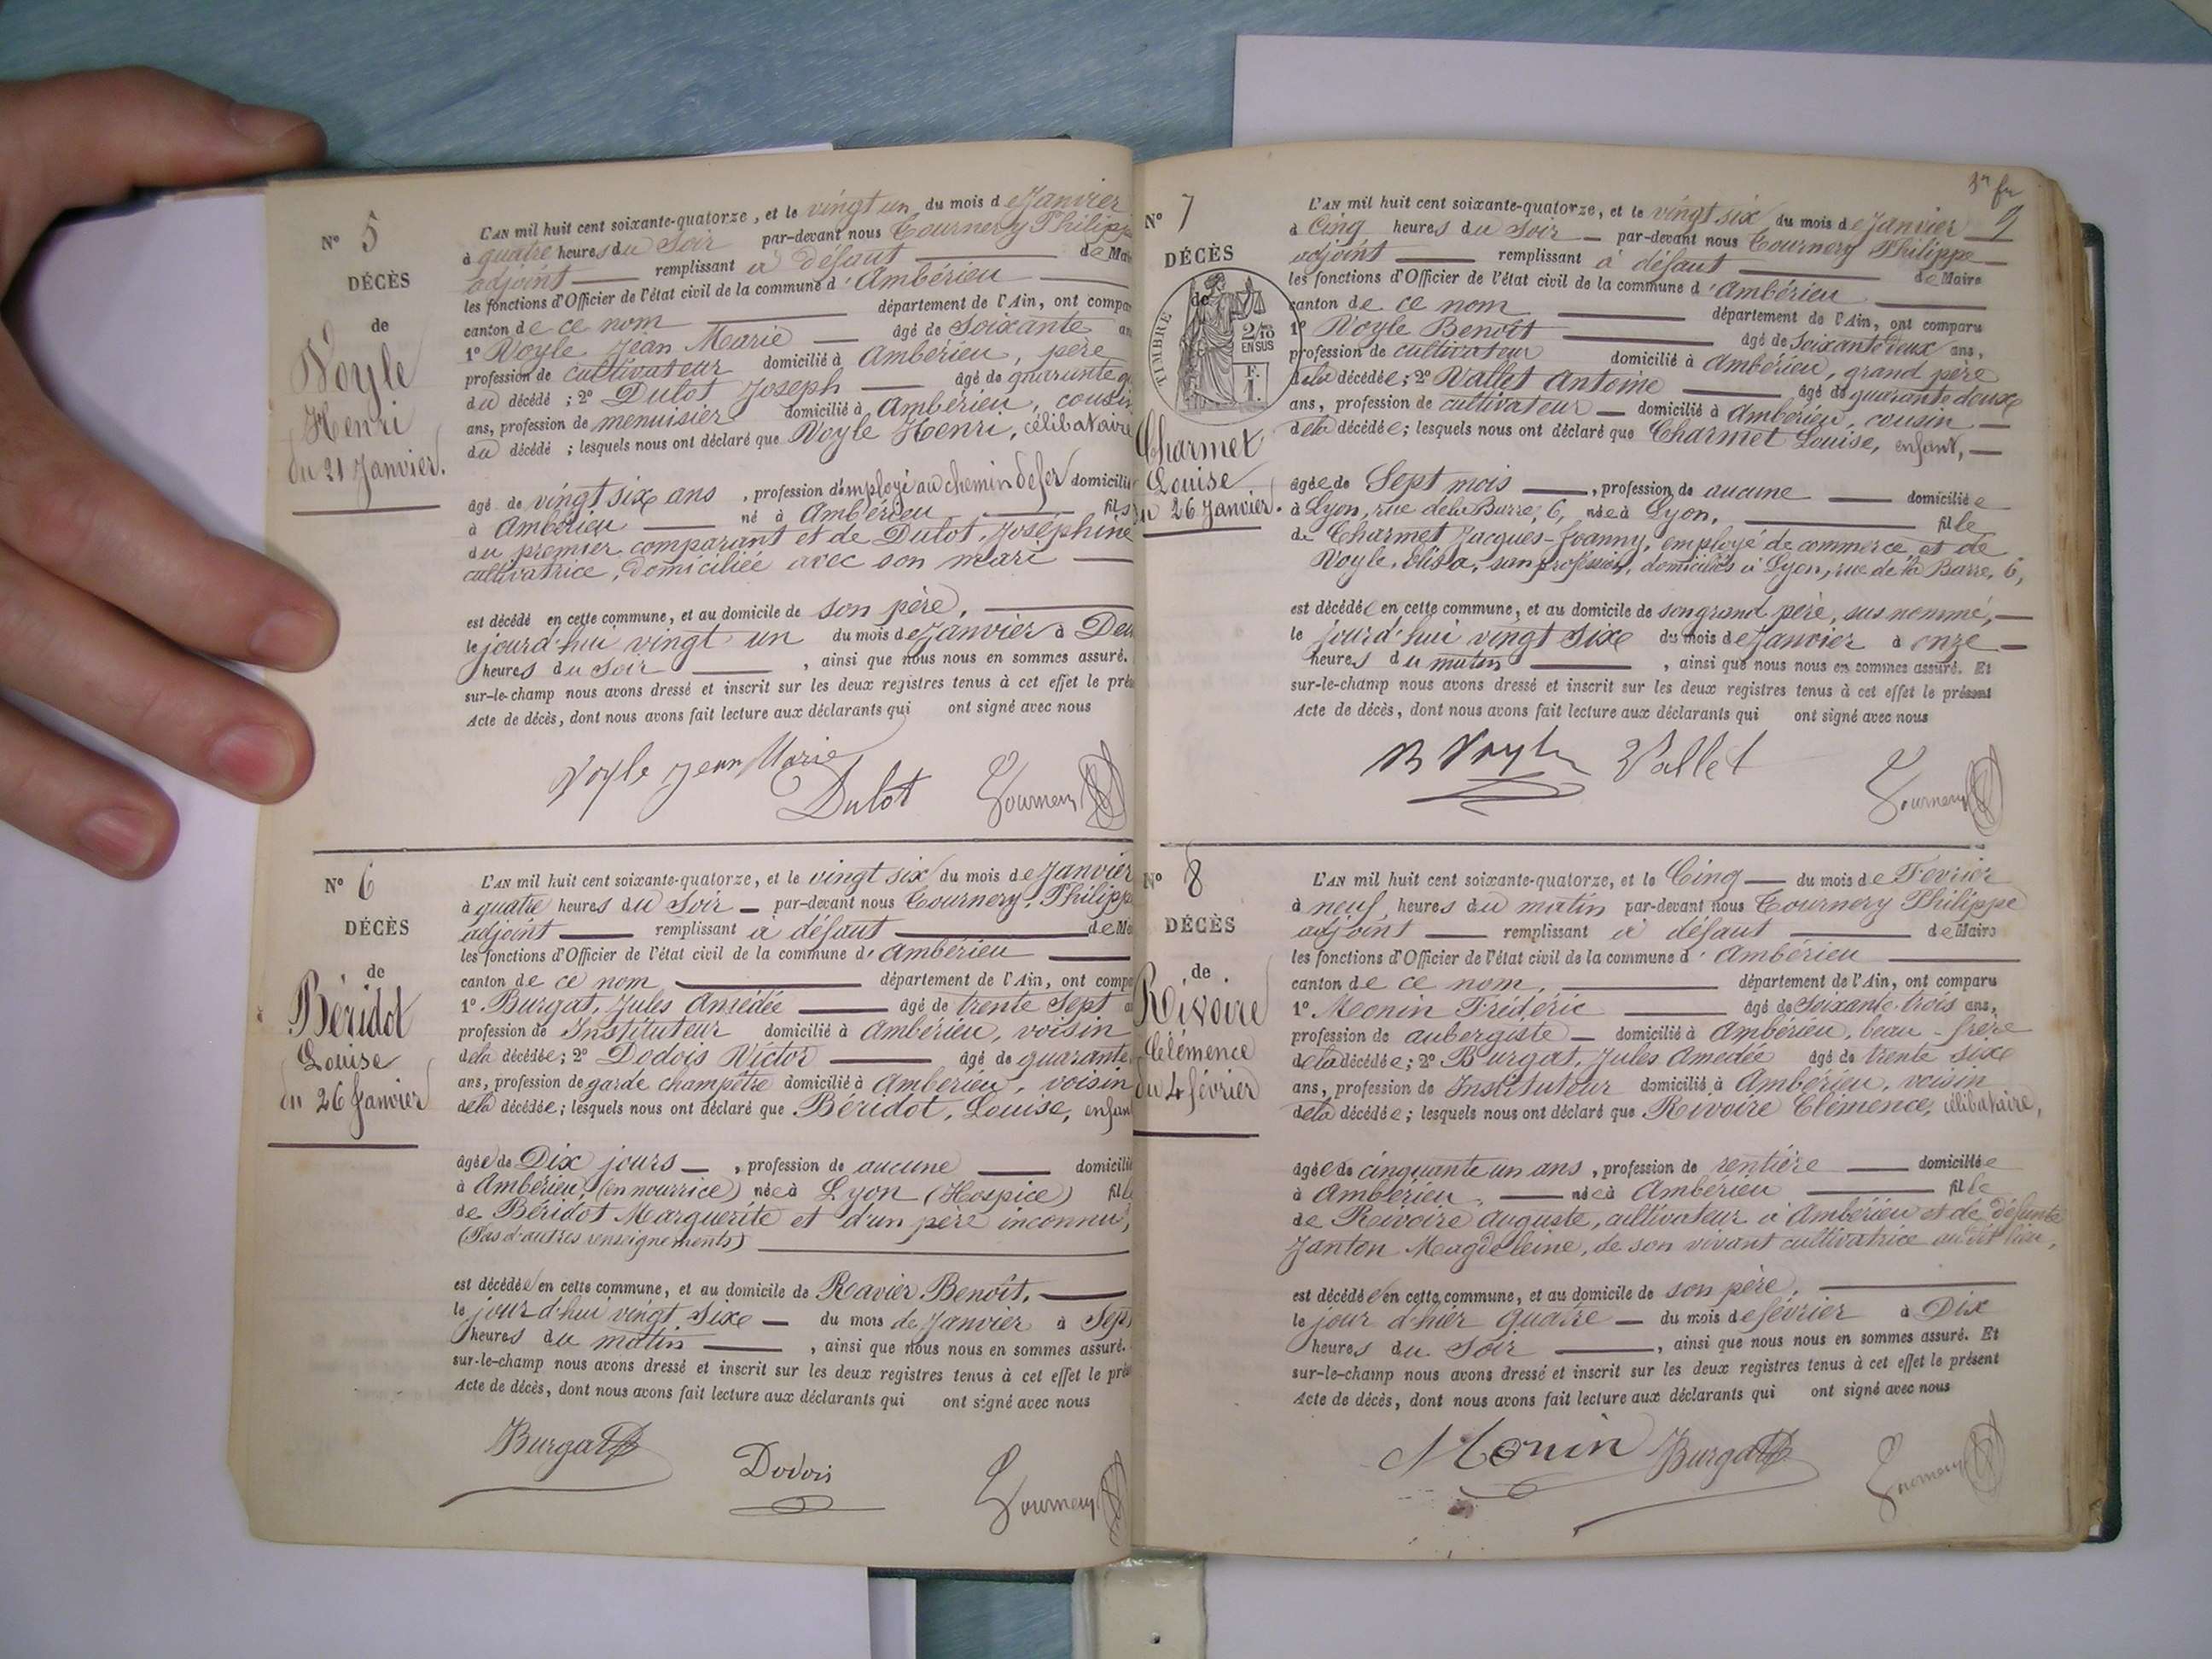 N° 5
DÉCÈS
de
Voyle
Henri
du 21 Janvier.
L'AN mil huit cent soixante-quatorze, et le vingt un du mois de Janvier
à quatre heures du Soir par-devant nous Tournery Philippe
adjoint remplissant à défaut de Maire
les fonctions d'Officier de l'état civil de la commune d'Ambérieu
canton de ce nom département de l'Ain, ont compa
1° Voyle Jean Marie âgé de Soixante an
profession de cultivateur domicilié à Ambérieu, père
du décédé ; 2° Dulot Joseph âgé de quarante
ans, profession de menuisier domicilié à Ambérieu, cousin
du décédé ; lesquels nous ont déclaré que Voyle Henri, célibataire
âgé de vingt six ans, profession d'employé au chemin de fer domicilié
à Ambérieu né à Ambérieu fils
du premier comparant et de Dulot, Joséphine
cultivatrice, domiciliée avec son mari
est décédé en cette commune, et au domicile de son père,
le jourd'hui vingt un du mois de Janvier à Deu
heures du Soir, ainsi que nous nous en sommes assuré.
sur-le-champ nous avons dressé et inscrit sur les deux registres tenus à cet effet le pré
Acte de décès, dont nous avons fait lecture aux déclarants qui ont signé avec nous
Voyle jean Marie
Dulot Tournery
N° 6
DÉCÈS
de
Béridot
Louise
du 26 Janvier
L'AN mil huit cent soixante-quatorze, et le vingt six du mois de Janvier
à quatre heures du Soir par-devant nous Tournery, Philippe
adjoint remplissant à défaut de Ma
les fonctions d'Officier de l'état civil de la commune d'Ambérieu
canton de ce nom département de l'Ain, ont compa
1° Burgat, Jules Amédée âgé de trente Sept a
profession de Instituteur domicilié à Ambérieu, voisin
de la décédée ; 2° Dodois Victor âgé de quarante
ans, profession de garde champêtre domicilié à Ambérieu, voisin
de la décédée ; lesquels nous ont déclaré que Béridot, Louise, enfan
âgée de Dix jours, profession de aucune domicilié
à Ambérieu, (en nourrice) née à Lyon (Hospice) fille
de Béridot Marguerite et d'un père inconnu,
(Pas d'autres renseignements)
est décédée en cette commune, et au domicile de Ravier Benoît,
le jour d'hui vingt Sixe du mois de Janvier à Sept
heures du matin, ainsi que nous nous en sommes assuré.
sur-le-champ nous avons dressé et inscrit sur les deux registres tenus à cet effet le pré
Acte de décès, dont nous avons fait lecture aux déclarants qui ont signé avec nous
Burgat Dodois Tournery
9
N° 7
DÉCÈS
de
TIMBRE
2/10
EN SUS
F.
1.
Charmet
Louise
du 26 Janvier.
L'AN mil huit cent soixante-quatorze, et le vingt six du mois de Janvier
à Cinq heures du Soir par-devant nous Tournery Philippe
adjoint remplissant à défaut de Maire
les fonctions d'Officier de l'état civil de la commune d'Ambérieu
canton de ce nom département de l'Ain, ont comparu
1° Voyle Benoît âgé de Soixante deux ans,
profession de cultivateur domicilié à Ambérieu, grand père
de la décédée ; 2° Vallet Antoine âgé de quarante deux
ans, profession de cultivateur domicilié à Ambérieu, cousin
de la décédée ; lesquels nous ont déclaré que Charmet Louise, enfant,
âgée de Sept mois, profession de aucune domiciliée
à Lyon, rue de la Barre, 6, née à Lyon, fille
de Charmet Jacques-Joanny, employé de commerce et de
Voyle, Elisa, sans profession, domiciliés à Lyon, rue de la Barre, 6,
est décédée en cette commune, et au domicile de son grand père, sus nommé,
le jourd'hui vingt Sixe du mois de Janvier à onze
heures du matin, ainsi que nous nous en sommes assuré. Et
sur-le-champ nous avons dressé et inscrit sur les deux registres tenus à cet effet le présent
Acte de décès, dont nous avons fait lecture aux déclarants qui ont signé avec nous
B Voyle Vallet Tournery
N° 8
DÉCÈS
de
Rivoire
Clémence
du 4 février
L'AN mil huit cent soixante-quatorze, et le Cinq du mois de Fevrier
à neuf, heures du matin par-devant nous Tournery Philippe
adjoint remplissant à défaut de Maire
les fonctions d'Officier de l'état civil de la commune d'Ambérieu
canton de ce nom, département de l'Ain, ont comparu
1° Monin Frédéric âgé de Soixante-trois ans,
profession de aubergiste domicilié à Ambérieu, beau-frère
de la décédée ; 2° Burgat, Jules Amedée âgé de trente sixe
ans, profession de Instituteur domicilié à Ambérieu, voisin
de la décédée ; lesquels nous ont déclaré que Rivoire Clémence, célibataire,
âgée de cinquante un ans, profession de rentière domiciliée
à Ambérieu, née à Ambérieu fille
de Rivoire Auguste, cultivateur à Ambérieu et de défunte
Janton Magdeleine, de son vivant cultivatrice au dit lieu,
est décédée en cette commune, et au domicile de son père,
le jour d'hier quatre du mois de février à Dix
heures du Soir, ainsi que nous nous en sommes assuré. Et
sur-le-champ nous avons dressé et inscrit sur les deux registres tenus à cet effet le présent
Acte de décès, dont nous avons fait lecture aux déclarants qui ont signé avec nous
Monin Burgat Tournery